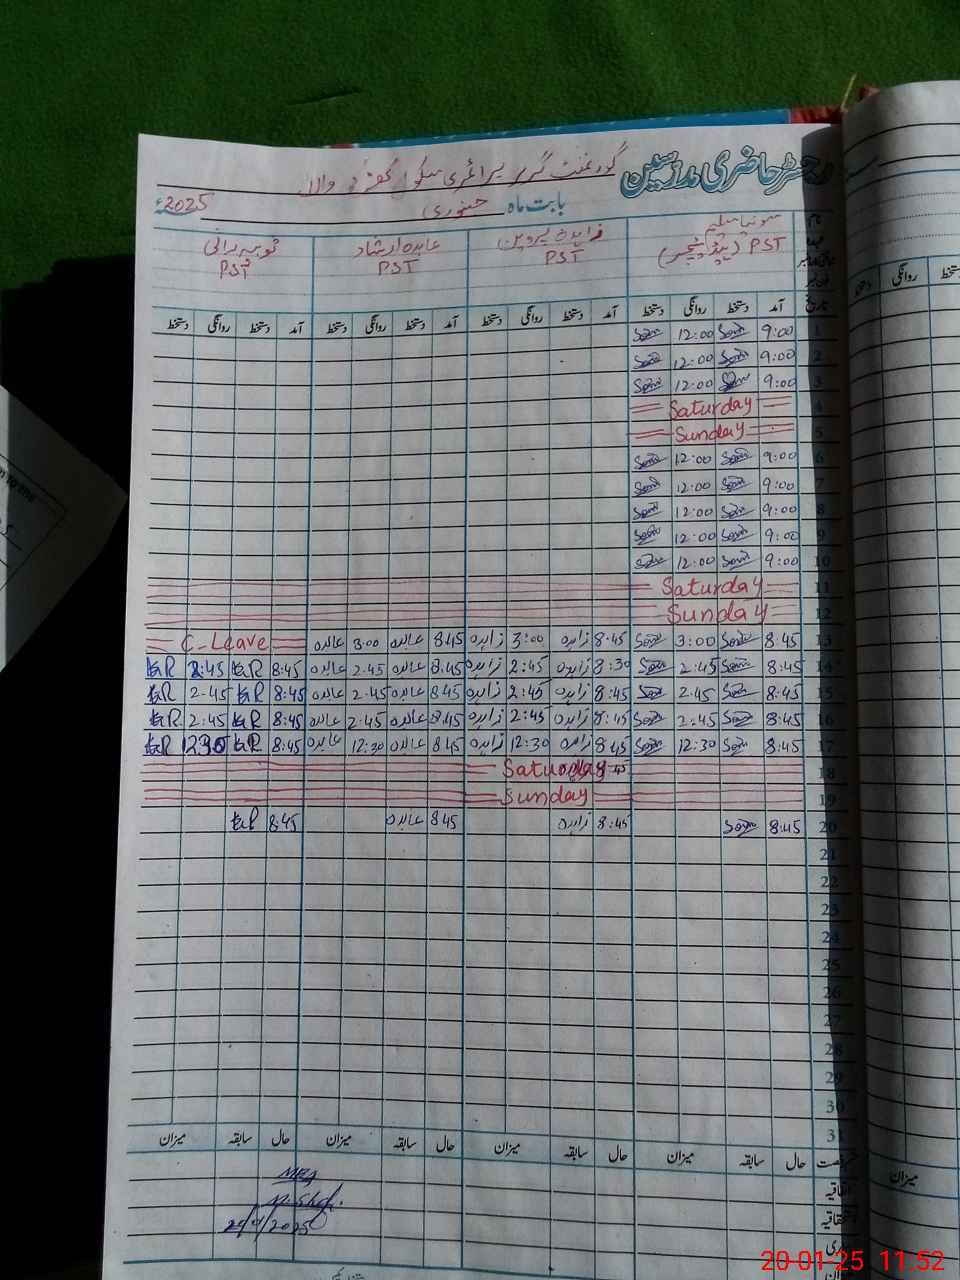 رجسٹر حاضری مدرسین گورنمنٹ گرلز پرائمری سکول والا
بابت ماہ جنوری 2025ء
سونیا سلیم زاہدہ پروین عابدہ ارشاد ثوبیہ رانی
PST (ہیڈ ٹیچر) PST PST PST
تاریخ آمد دستخط روانگی دستخط آمد دستخط روانگی دستخط آمد دستخط روانگی دستخط آمد دستخط روانگی دستخط
1 9:00 Som 12:00 Som
2 9:00 Som 12:00 Som
3 9:00 Som 12:00 Som
4 Saturday
5 Sunday
6 9:00 Som 12:00 Som
7 9:00 Som 12:00 Som
8 9:00 Som 12:00 Som
9 9:00 Som 12:00 Som
10 9:00 Som 12:00 Som
11 Saturday
12 Sunday
13 8:45 Som 3:00 Som 8:45 زاہدہ 3:00 زاہدہ 8:45 عابدہ 3:00 عابدہ C-Leave
14 8:45 Som 2:45 Som 8:30 زاہدہ 2:45 زاہدہ 8:45 عابدہ 2:45 عابدہ 8:45 2:45
15 8:45 Som 2:45 Som 8:45 زاہدہ 2:45 زاہدہ 8:45 عابدہ 2:45 عابدہ 8:45 2:45
16 8:45 Som 2:45 Som 8:45 زاہدہ 2:45 زاہدہ 8:45 عابدہ 2:45 عابدہ 8:45 2:45
17 8:45 Som 12:30 Som 8:45 زاہدہ 12:30 زاہدہ 8:45 عابدہ 12:30 عابدہ 8:45 12:30
18 Saturday
19 Sunday
20 8:45 Som 8:45 زاہدہ 8:45 عابدہ 8:45
21
22
23
24
25
26
27
28
29
30
31
رخصت حال سابقہ میزان حال سابقہ میزان حال سابقہ میزان حال سابقہ میزان
اتفاقیہ
استحقاقیہ
میزان
روانگی دستخط
20-01-25 11:52